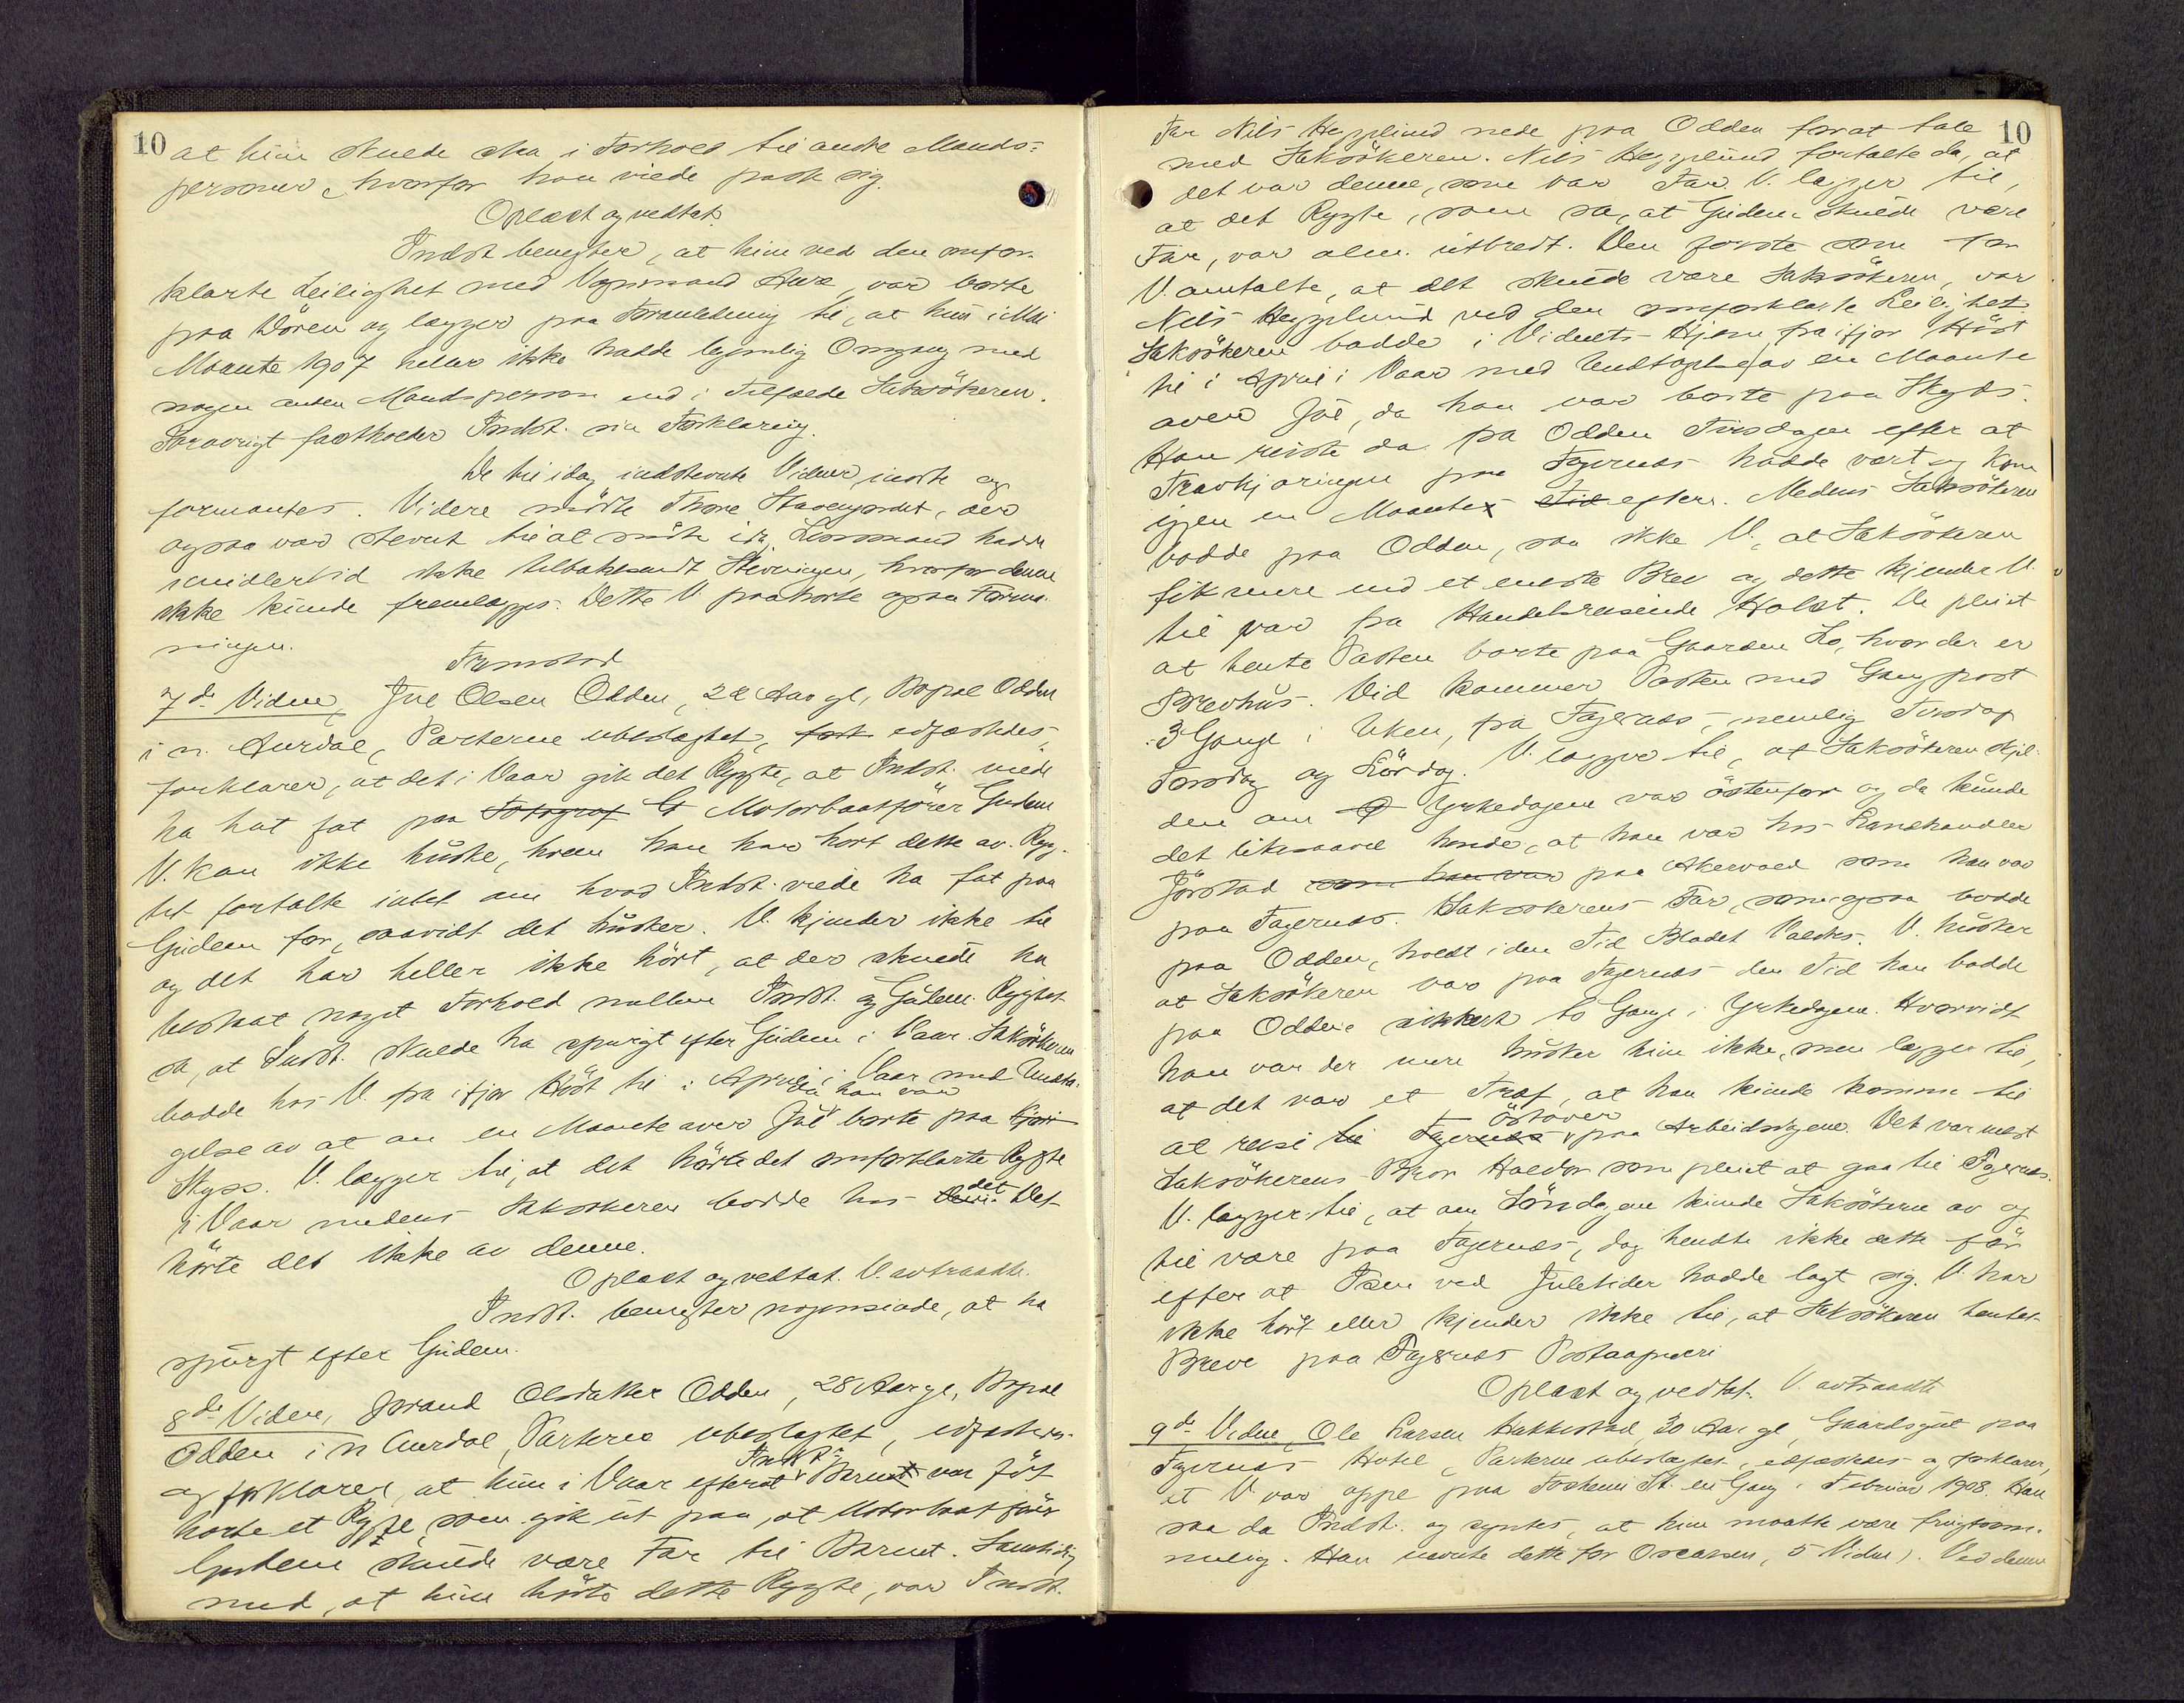 10
at hun skulde staa i Forhold til andre Mands-
personer, hvorfor han vilde passe sig.
Oplæst og vedtat.
Indst. benegter, at hun ved den omfor-
klarte Leilighet med Vognmand Aure, var borte
paa Døren og lægger paa Foranledning til, at hun i Mai
Maanet 1907 heller ikke hadde legemlig Omgang med
nogen anden Mandsperson end i Tilfælde Saksökeren.
Forøvrigt fastholder Indst. sin Forklaring.
De til idag indstevnte Vidner møtte og
formantes. Videre mødte Thore Stavengaardet, der
ogsaa var stevnt til at møte idag. Lensmand hadde
imidlertid ikke tilbakesendt Stevningen, hvorfor denne
ikke kunde fremlægges. Dette V. paahørte ogsaa Forma-
ningen.
Fremstod
7de Vidne, Joel Olsen Odden, 22 Aar gl., Bopæl Odden
i n. Aurdal, Parterne ubeslægtet, fork edfæstedes,
forklarer, at det i Vaar gik det Rygte, at Indst. vilde
ha hat fat paa Fotograf G Motorbaatfører Gudem
V. kan ikke huske, hvem han har hørt dette av. Ryg-
tet fortalte intet om hvad Indst. vilde ha fat paa
Gudem for, saavidt det husker. V. kjender ikke til
og det har heller ikke hört, at der skulde ha
bestaat noget Forhold mellem Indst. og Gudem. Rygtet
sa, at Indst. skulde ha spurgt efter Gudem i Vaar. Saksökeren
bodde hos V. fra ifjor Höst til i April i Vaar med Undta-
gelse av at om en Maanet over Jul da han var borte paa Kjøri
Skyss. V. lægger til, at det hörte det omforklarte Rygte
i Vaar medens Saksøkeren bodde hos det. Det
hörte det ikke av denne.
Oplæst og vedtat. V. avtraadte.
Indst. benegter nogensinde, at ha
spurgt efter Gudem.
8de Vidne, Jørand Olsdatter Odden, 28 Aar gl., Bopæl
Odden i n Aurdal, Parterne ubeslægtet, edfæstedes
og forklarer, at hun i Vaar efterat Indst's Barnet var född
hørte et Rygte, som gik ut paa, at Motorbaatförer
Gudem skulde være Far til Barnet. Samtidig
med, at hun hörte dette Rygte, var Indst.
10
Far Nils Heggelund nede paa Odden forat tale
med Saksökeren. Nils Heggelund fortalte da, at
det var denne, som var Far. V. lægger til,
at det Rygte, som sa, at Gudem skulde være
Far, var alm. utbredt. Den første som for
V. omtalte, at det skulde være Saksökeren, var
Nils Heggelund ved den omforklarte Leilighet.
Saksökeren bodde i Vidnets Hjem fra ifjor Höst
til i April i Vaar med Undtagelse av en Maanet
over Jul, da han var borte paa Skyds.
Han reiste da fra Odden Tirsdagen efter at
Travkjøringen paa Fagernæs hadde vært og kom
igjen en Maanet Tid efter. Medens Saksökeren
bodde paa Odden, saa ikke V., at Saksökeren
fik mere end et eneste Brev og dette kjender V.
til var fra Handelsreisende Holst. De pleiet
at hente Posten borte paa Gaarden Lo, hvor der er
Brevhus. Did kommer Posten med Gangpost
3 Gange i Uken, fra Fagernæs, nemlig Tirsdag
Torsdag og Lördag. V. lægger til, at Saksökeren skjel-
den om Yrkedagene var östenfor og da kunde
det likesaavel hende, at han var hos Landhandler
Jörstad som han var paa Akervold som han var
paa Fagernæs. Saksøkerens Far, som ogsaa bodde
paa Odden, holdt i den Tid Bladet Valdres. V. husker
at Saksökeren var paa Fagernæs den Tid han bodde
paa Odden sikkert to Gange i Yrkedagene. Hvorvidt
han var der mere husker hun ikke, men lægger til,
at det var et Træf, at han kunde komme til
at reise til Fagernæs östover paa Arbeidsdagene. Det var mest
Saksökerens Bror Haldor som pleiet at gaa til Fagernæs.
V. lægger til, at om Söndagene kunde Saksökeren av og
til være paa Fagernæs, dog hendte ikke dette för
efter at Isen ved Juletider hadde lagt sig. V. har
ikke hört eller kjender ikke til, at Saksökeren hentet
Breve paa Fagernæs Postaapneri
Oplæst og vedtat. V. avtraadte
9de Vidne, Ole Larsen Hakkestad, 30 Aar gl., Gaardsgut paa
Fagernæs Hotel, Parterne ubeslægtet, edfæstedes og forklarer,
at V. var oppe paa Fosheim St. en Gang i Februar 1908. Han
saa da Indst. og syntes, at hun maatte være frugtsom-
melig. Han nævnte dette for Oscarsen, (5 Vidne). Ved denne